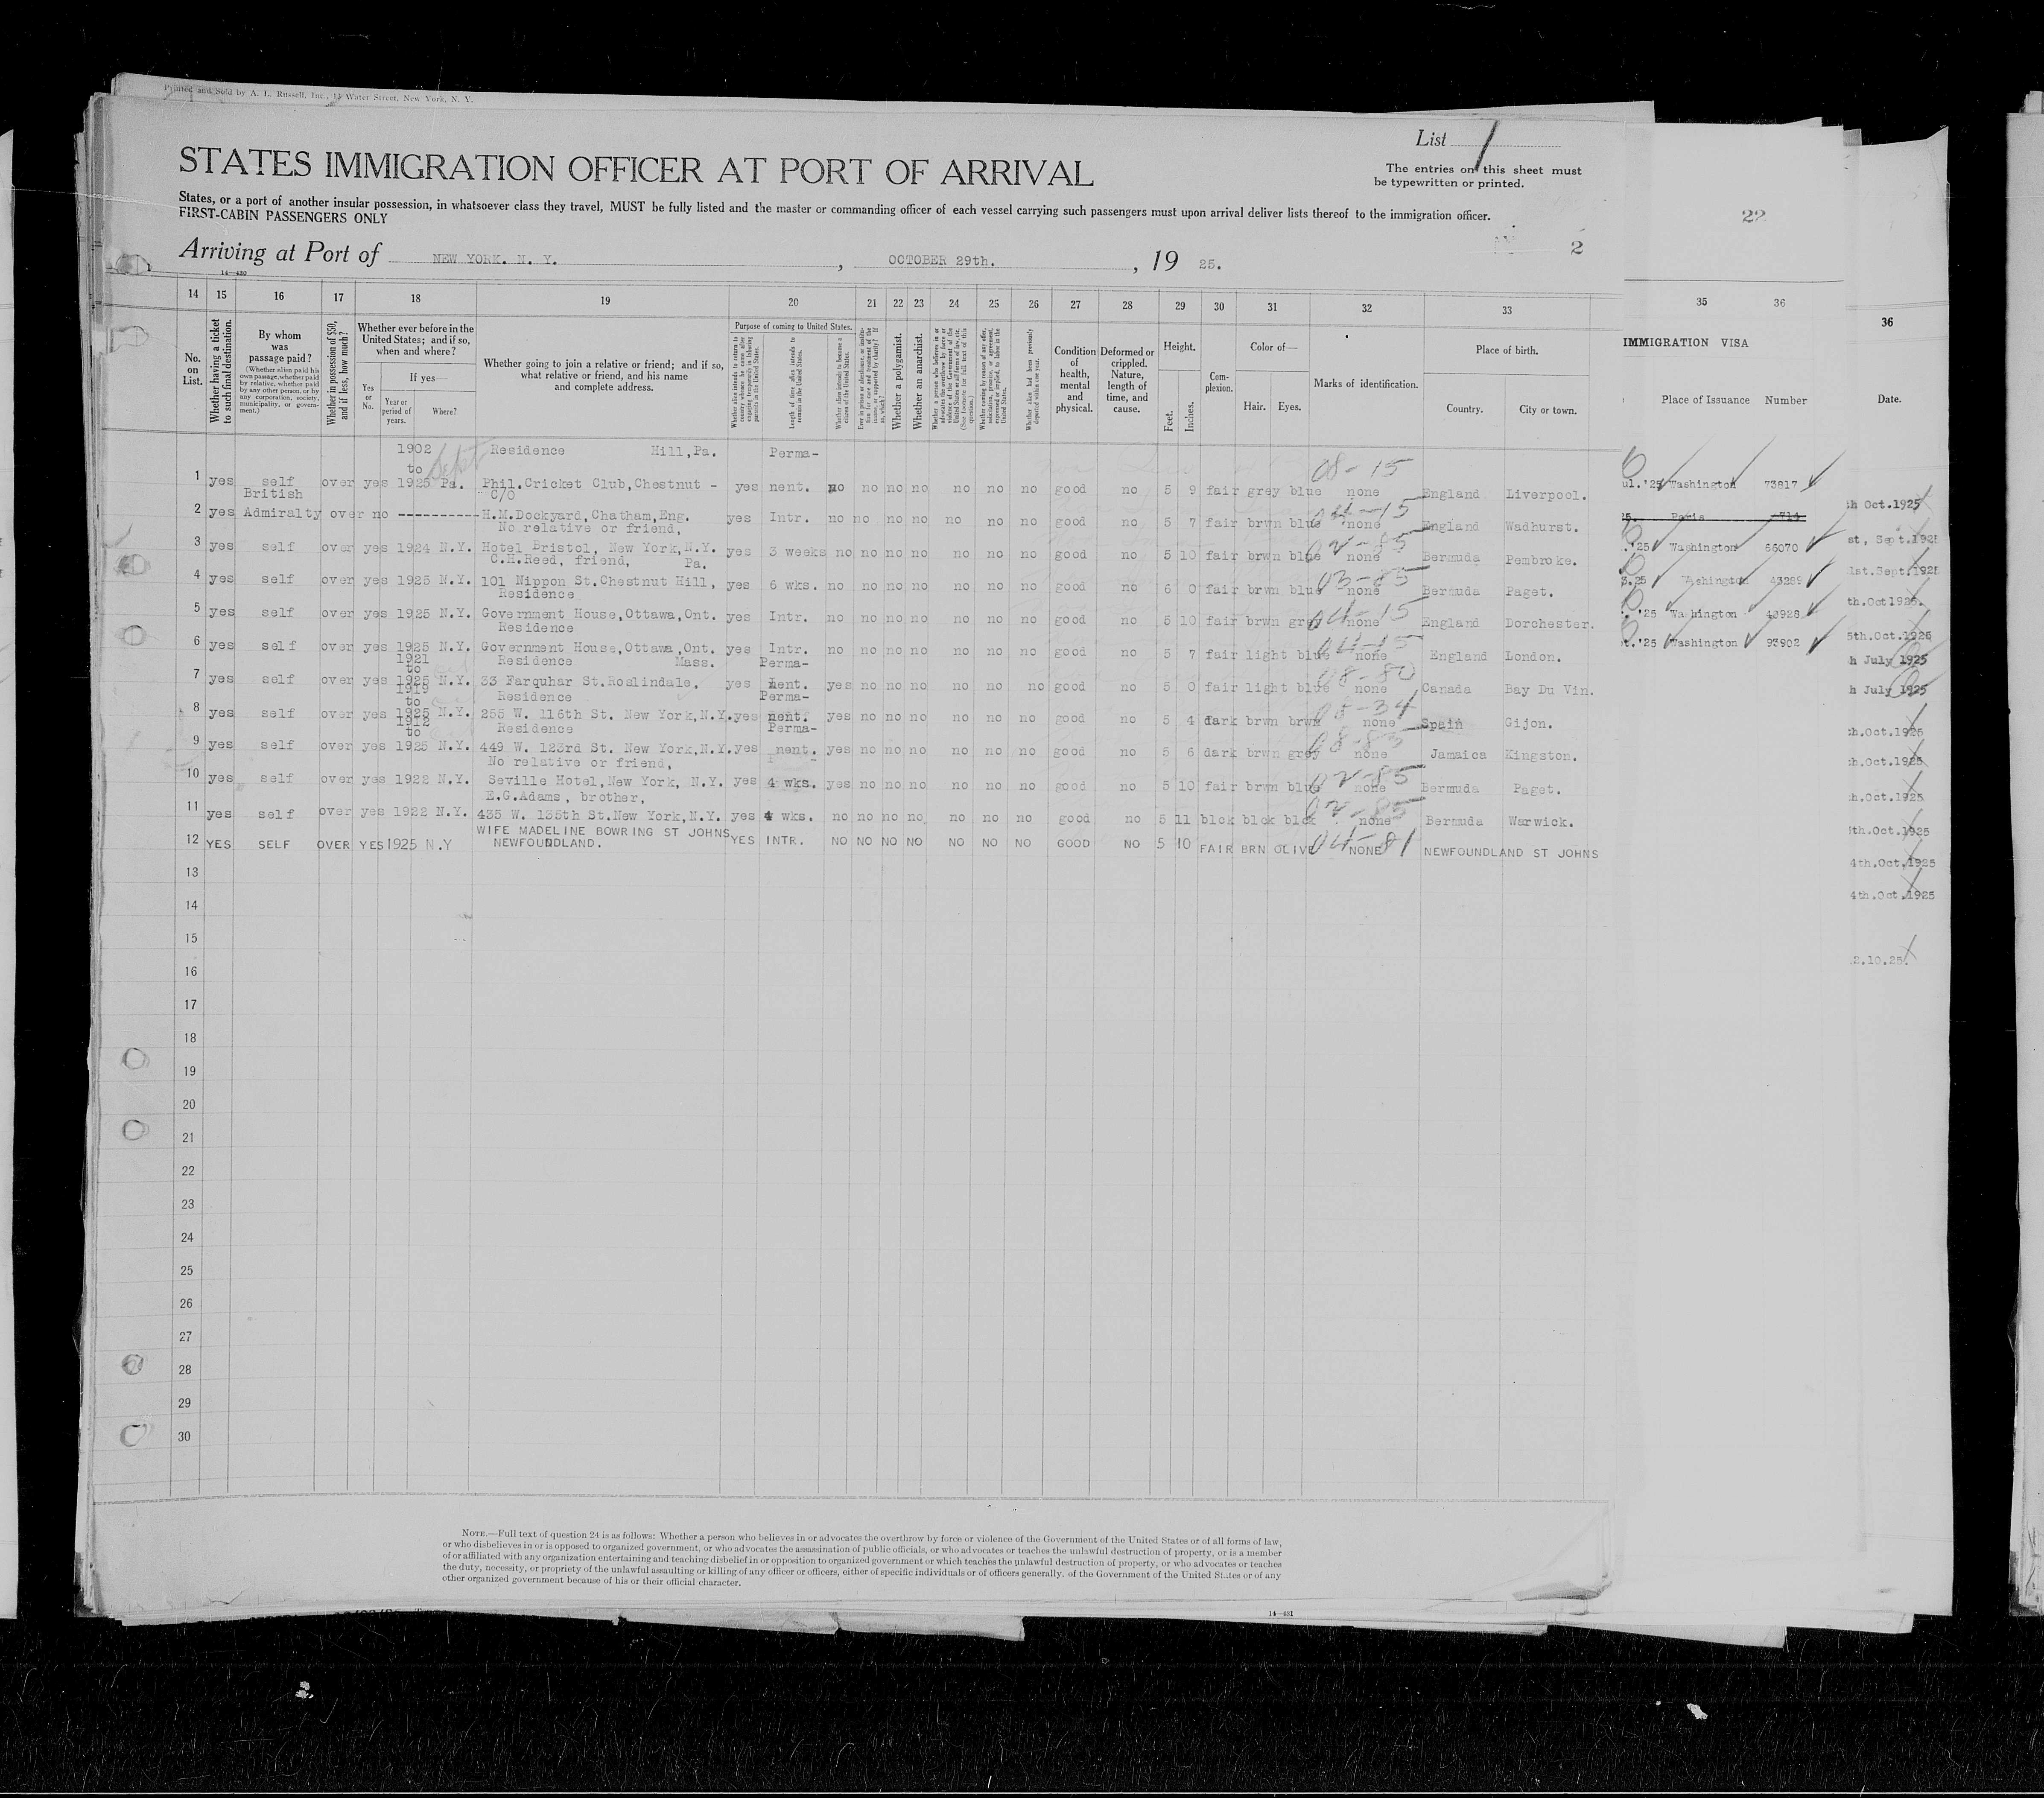 Printed and Sold by A. L. Russell, Inc., 13 Water Street, New York, N. Y.
List 1
STATES IMMIGRATION OFFICER AT PORT OF ARRIVAL
The entries on this sheet must
be typewritten or printed.
States, or a port of another insular possession, in whatsoever class they travel, MUST be fully listed and the master or commanding officer of each vessel carrying such passengers must upon arrival deliver lists thereof to the immigration officer.
FIRST-CABIN PASSENGERS ONLY
22
2
Arriving at Port of NEW YORK. N. Y. , OCTOBER 29th. , 19 25.
14—430
14 15 16 17 18 19 20 21 22 23 24 25 26 27 28 29 30 31 32 33 35 36
36
No. on List.
Whether having a ticket to such final destination.
By whom was passage paid?
(Whether alien paid his own passage, whether paid by relative, whether paid by any other person, or by any corporation, society, municipality, or government.)
Whether in possession of $50, and if less, how much?
Whether ever before in the United States; and if so, when and where?
Yes or No.
If yes—
Year or period of years.
Where?
Whether going to join a relative or friend; and if so, what relative or friend, and his name and complete address.
Purpose of coming to United States.
Length of time alien intends to remain in the United States.
Whether alien intends to become a citizen of the United States.
Whether a polygamist.
Whether an anarchist.
Condition of health, mental and physical.
Deformed or crippled. Nature, length of time, and cause.
Height.
Feet.
Inches.
Complexion.
Color of—
Hair. Eyes.
Marks of identification.
Place of birth.
Country. City or town.
IMMIGRATION VISA
Place of Issuance Number
Date.
1902 Residence Hill, Pa. Perma-
to 08-15
1 yes self over yes 1925 Pa. Phil.Cricket Club,Chestnut - yes nent. no no no no no no no good no 5 9 fair grey blue none England Liverpool.
British C/O
2 yes Admiralty over no ---------- H.M.Dockyard, Chatham, Eng. yes Intr. no no no no no no no good no 5 7 fair brwn blue none England Wadhurst.
04-15
No relative or friend,
3 yes self over yes 1924 N.Y. Hotel Bristol, New York,N.Y. yes 3 weeks no no no no no no no good no 5 10 fair brwn blue none Bermuda Pembroke.
02-85
C.H.Reed, friend, Pa.
4 yes self over yes 1925 N.Y. 101 Nippon St.Chestnut Hill, yes 6 wks. no no no no no no no good no 6 0 fair brwn blue none Bermuda Paget.
03-85
Residence
5 yes self over yes 1925 N.Y. Government House,Ottawa,Ont. yes Intr. no no no no no no no good no 5 10 fair brwn grey none England Dorchester.
04-15
Residence
6 yes self over yes 1925 N.Y. Government House,Ottawa,Ont. yes Intr. no no no no no no no good no 5 7 fair light blue none England London.
04-15
1921 Residence Mass. Perma-
to
7 yes self over yes 1925 N.Y. 33 Farquhar St.Roslindale, yes nent. yes no no no no no no good no 5 0 fair light blue none Canada Bay Du Vin.
08-80
1919 Residence Perma-
to
8 yes self over yes 1925 N.Y. 255 W. 116th St. New York,N.Y. yes nent. yes no no no no no no good no 5 4 dark brwn brwn none Spain Gijon.
08-34
1912 Residence Perma-
to
9 yes self over yes 1925 N.Y. 449 W. 123rd St. New York,N.Y. yes nent. yes no no no no no no good no 5 6 dark brwn grey none Jamaica Kingston.
08-83
No relative or friend,
10 yes self over yes 1922 N.Y. Seville Hotel,New York, N.Y. yes 4 wks. yes no no no no no no good no 5 10 fair brwn blue none Bermuda Paget.
02-85
E.G.Adams, brother,
11 yes self over yes 1922 N.Y. 435 W. 135th St.New York,N.Y. yes 4 wks. no no no no no no no good no 5 11 blck blck blck none Bermuda Warwick.
02-85
WIFE MADELINE BOWRING ST JOHNS
12 YES SELF OVER YES 1925 N.Y NEWFOUNDLAND. YES INTR. NO NO NO NO NO NO NO GOOD NO 5 10 FAIR BRN OLIVE NONE NEWFOUNDLAND ST JOHNS
04-81
13
14
15
16
17
18
19
20
21
22
23
24
25
26
27
28
29
30
ul.'25 Washington 73817
25. Paris 714
.'25 Washington 66070
3.25 Washington 43289
'25 Washington 40928
t.'25 Washington 93902
h Oct.1925
st, Sept.1925
1st.Sept.1925
th.Oct1925.
5th.Oct.1925
h July 1925
h July 1925
h.Oct.1925
h.Oct.1925
h.Oct.1925
th.Oct.1925
4th.Oct.1925
4th.Oct.1925
2.10.25.
NOTE.—Full text of question 24 is as follows: Whether a person who believes in or advocates the overthrow by force or violence of the Government of the United States or of all forms of law,
or who disbelieves in or is opposed to organized government, or who advocates the assassination of public officials, or who advocates or teaches the unlawful destruction of property, or is a member
of or affiliated with any organization entertaining and teaching disbelief in or opposition to organized government or which teaches the unlawful destruction of property, or who advocates or teaches
the duty, necessity, or propriety of the unlawful assaulting or killing of any officer or officers, either of specific individuals or of officers generally, of the Government of the United States or of any
other organized government because of his or their official character.
14—431